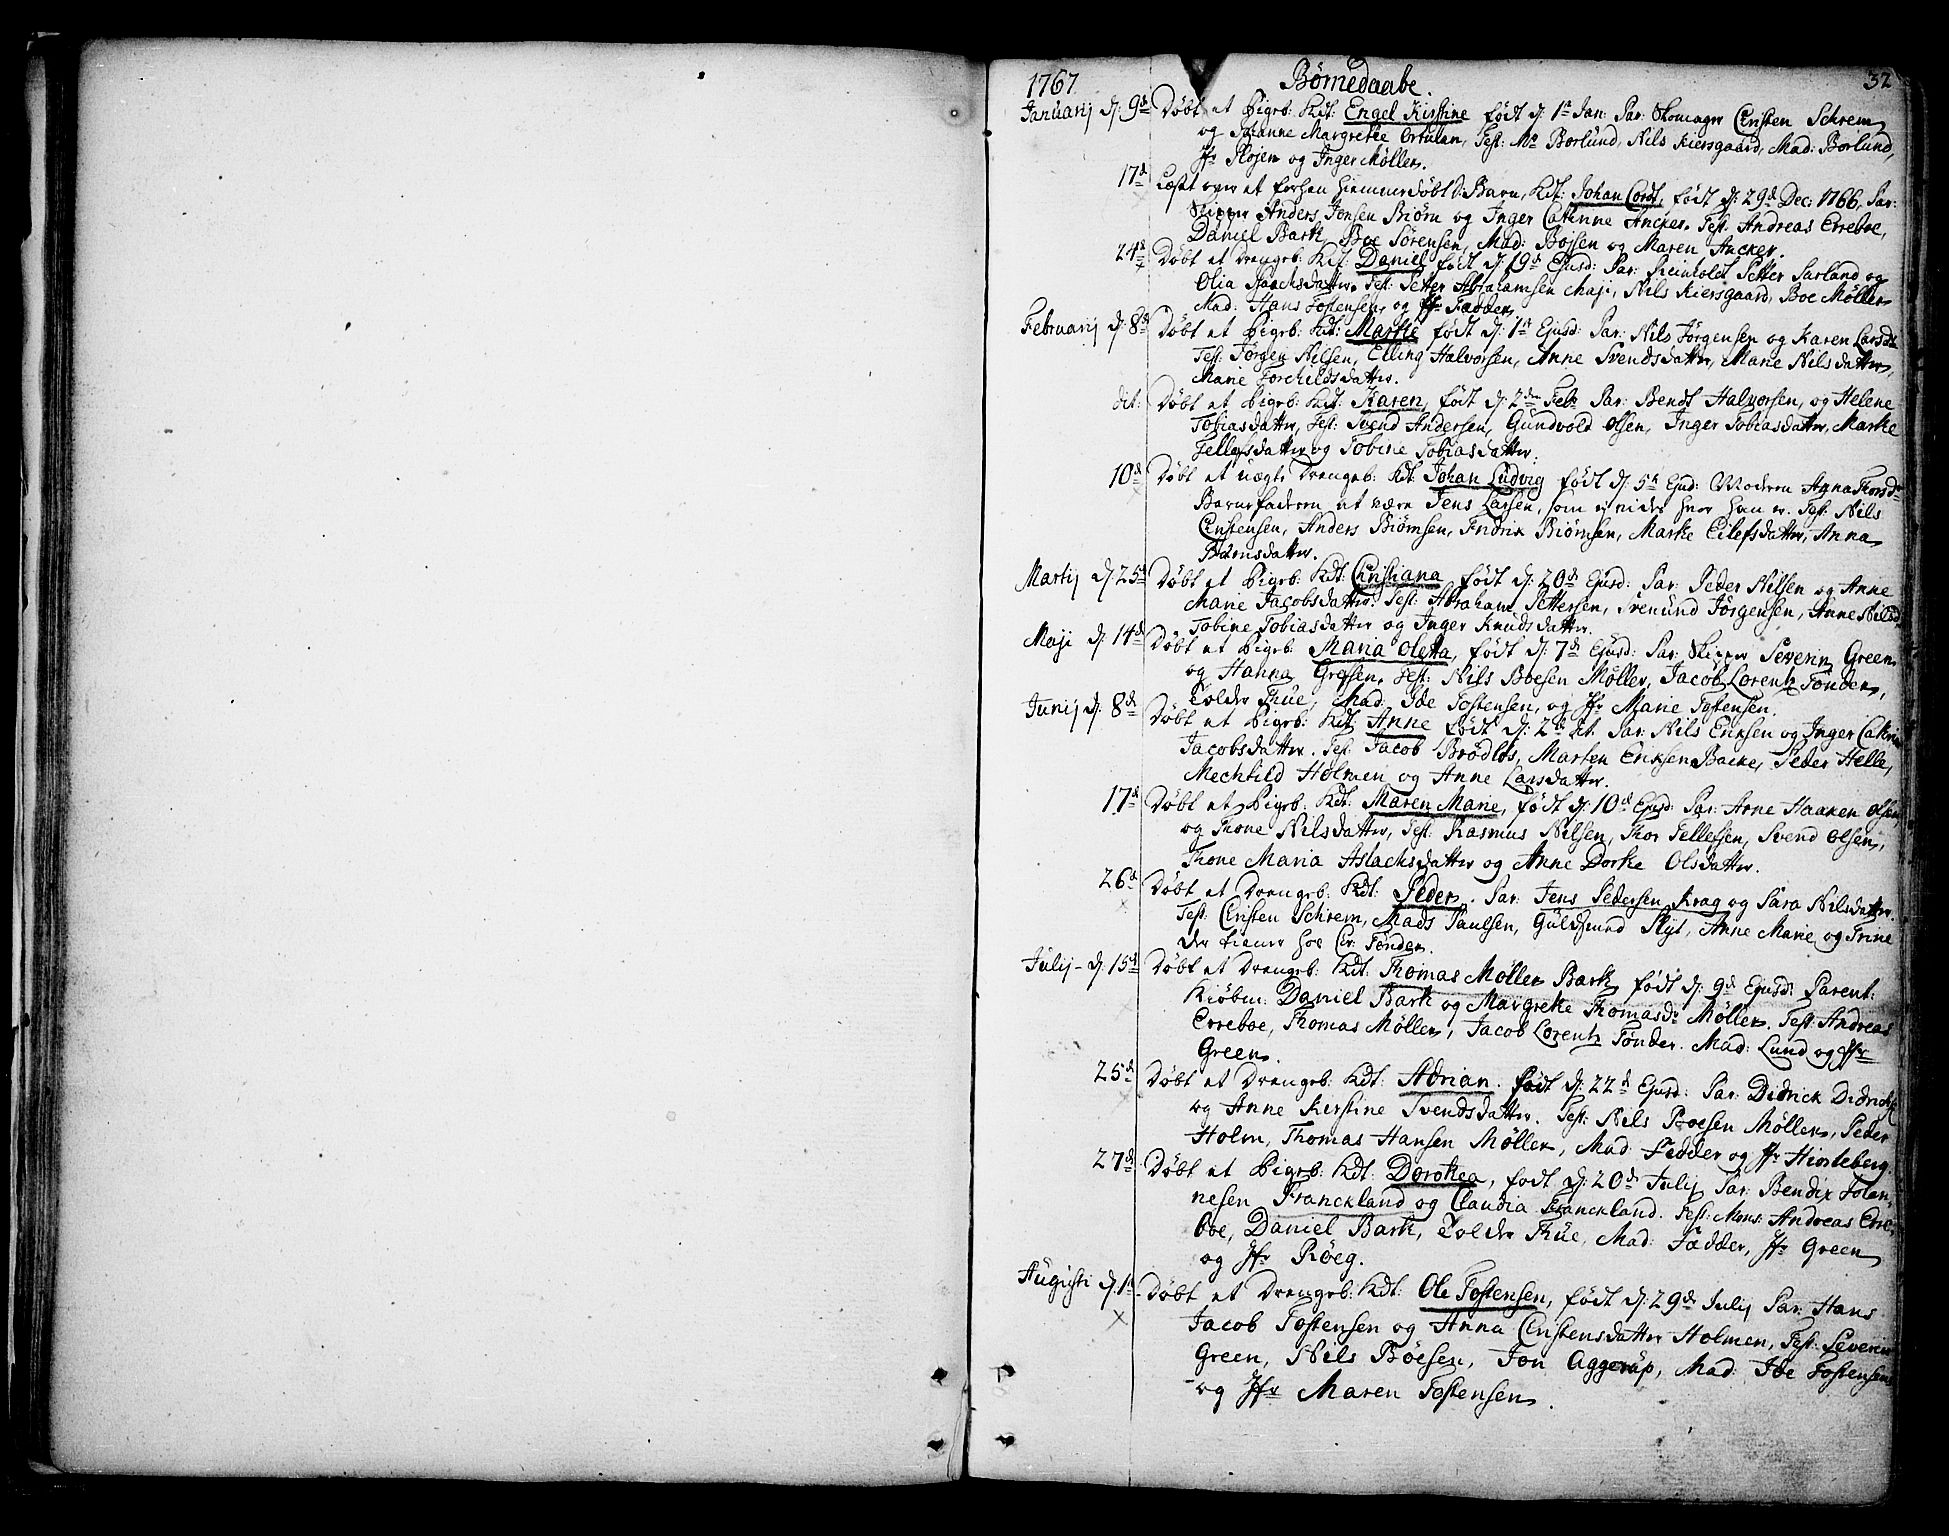 1767. Børnedaabe. 32
Januarij d. 9de Døbt et Pigeb: Kdt: Engel Kirstine født d: 1te Jan: Par: Skomager Christen Schrem
og Johanne Margrethe Ortulan, Test: Mr Borlund, Nils Kiersgaard, Mad: Borlund,
Jfr Plojen og Inger Møller.
17de Læst over et forhen hiemmedøbt Barn, Kdt: Johan Cordt, født d: 29de Dec: 1766, Par:
Skipper Anders Jensen Biørn og Inger Catrine Ancker. Test: Andreas Erreboe,
Daniel Bark, Boe Sørensen, Mad: Bojsen og Maren Ancker.
24de Døbt et Drengeb: Kdt: Daniel født d: 19de Ejusd: Par: Reinholdt Petter Sarland og
Olia Isaachsdatter. Test: Petter Abrahamsen Maji, Nils Kiersgaard, Boe Møller
Mad: Hans Tostensen, og Jfr Fædder.
Februarij d: 8de Døbt et Pigeb: Kdt: Marthe født d: 1te Ejusd: Par: Nils Jørgensen og Karen Larsdr
Test: Jørgen Nilsen, Elling Halvorsen, Anne Svendsdatter, Marie Nilsdatter,
Marie Torchildsdatter.
dit: Døbt et Pigeb: Kdt: Karen, født d: 2den Febr Par: Bendt Halvorsen, og Helene
Tobiasdatter, Test: Svend Andersen, Gundvold Olsen, Inger Tobiasdatter, Marthe
Tellefsdatter og Tobine Tobiasdatter.
10de Døbt et uægte Drengeb: Kdt: Johan Ludvig født d: 5te Ejusd: Moderen Agna Thorsdr
Barnefaderen at være Jens Larsen, som ej vides hvor han er. Test: Nils
Christensen, Anders Biørnsen, Fridrix Biørnsen, Marthe Eilefsdatter, Anna
Biørnsdatter.
Martij d. 25de Døbt et Pigeb: Kdt: Christiana født d: 20de Ejusd: Par: Peder Nilsen og Anne
Marie Jacobsdatter. Test: Abraham Pettersen, Svenund Jørgensen, Anne Nilsdr
Tobine Tobiasdatter og Inger Knudsdatter.
Maji d. 14de Døbt et Pigeb: Maria Oletta, født d: 7de Ejusd: Par: Skipper Severin Green
og Hanna Gregsen. Test: Nils Boesen Møller, Jacob Lorentz Tønder,
Tolder Thue, Mad: Ide Tostensen, og Jfr Marie Tostensen.
Junij d: 8de Døbt et Pigeb: Kdt: Anne født d: 2de dt. Par: Nils Erichsen og Inger Cathrine
Jacobsdatter. Test: Jacob Brødløs, Marten Erichsen Backe, Peder Helle,
Mechtild Holmen og Anne Larsdatter.
17de Døbt et Pigeb: Kdt: Maren Marie, født d: 10de Ejusd: Par: Arne Haaken Olsen,
og Thone Nilsdatter, Test: Rasmus Nilsen, Thor Tellefsen, Svend Olsen,
Thone Maria Aslachsdatter og Anne Dorthe Olsdatter.
26de Døbt et Drengeb: Kdt: Peder. Par: Jens Pedersen Krag og Sara Nilsdatter.
Test: Christen Schrem, Mads Paulsen, Guldsmed Ryt, Anne Marie og Trine
der tiener hos Cr: Tønder.
Julij d. 15de Døbt et Drengeb: Kdt: Thomas Møller Bark, født d: 9de Ejusd: Parent:
Kiøbm: Daniel Bark og Margrethe Thomasdr Møller. Test: Andreas
Erreboe, Thomas Møller, Jacob Lorentz Tønder. Mad: Lund og Jfr
Green.
25de Døbt et Drengeb: Kdt: Adrian. født d: 22de Ejusd: Par: Didrick Didrichs
og Anne Kirstine Svendsdatter. Test: Nils Boesen Møller, Peder
Holm, Thomas Hansen Møller, Mad: Fedder og Jfr Hiorteberg.
27de Døbt et Pigeb: Kdt: Dorothea, født d: 20de Julij Par: Bendix Johan
nesen Franckland og Claudia Franckland. Test: Mons: Andreas Erre
boe, Daniel Bark, Tolder Thue, Mad: Fædder, Jfr Green
og Jfr Røeg.
Augusti d. 1te Døbt et Drengeb: Kdt: Ole Tostensen, født d: 29de Julij Par: Hans
Jacob Tostensen og Anna Christensdatter Holmen, Test: Severin
Green, Nils Bøesen, Jon Aggerup, Mad: Ide Tostensen
og Jfr Maren Tostensen.